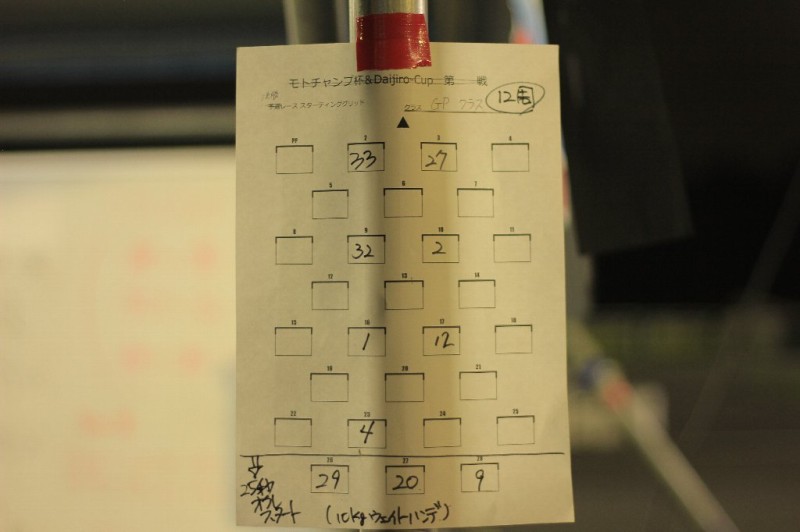 モトチャンプ杯&Daijiro-Cup 第 戦
予選レース スターティンググリッド クラス GP クラス 12周
PP 2 3 4
33 27
5 6 7
8 9 10 11
32 2
12 13 14
15 16 17 18
1 12
19 20 21
22 23 24 25
4
26 27 28
29 20 9
25秒
スタート (10kgウェイトハンデ)